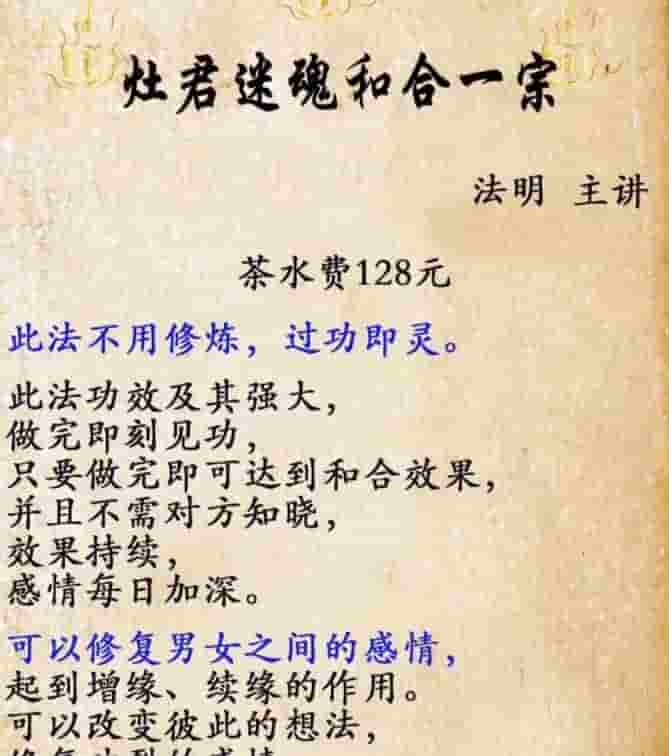 灶君迷魂和合一宗
法明 主讲
茶水费128元
此法不用修炼，过功即灵。
此法功效及其强大，
做完即刻见功，
只要做完即可达到和合效果，
并且不需对方知晓，
效果持续，
感情每日加深。
可以修复男女之间的感情，
起到增缘、续缘的作用。
可以改变彼此的想法，